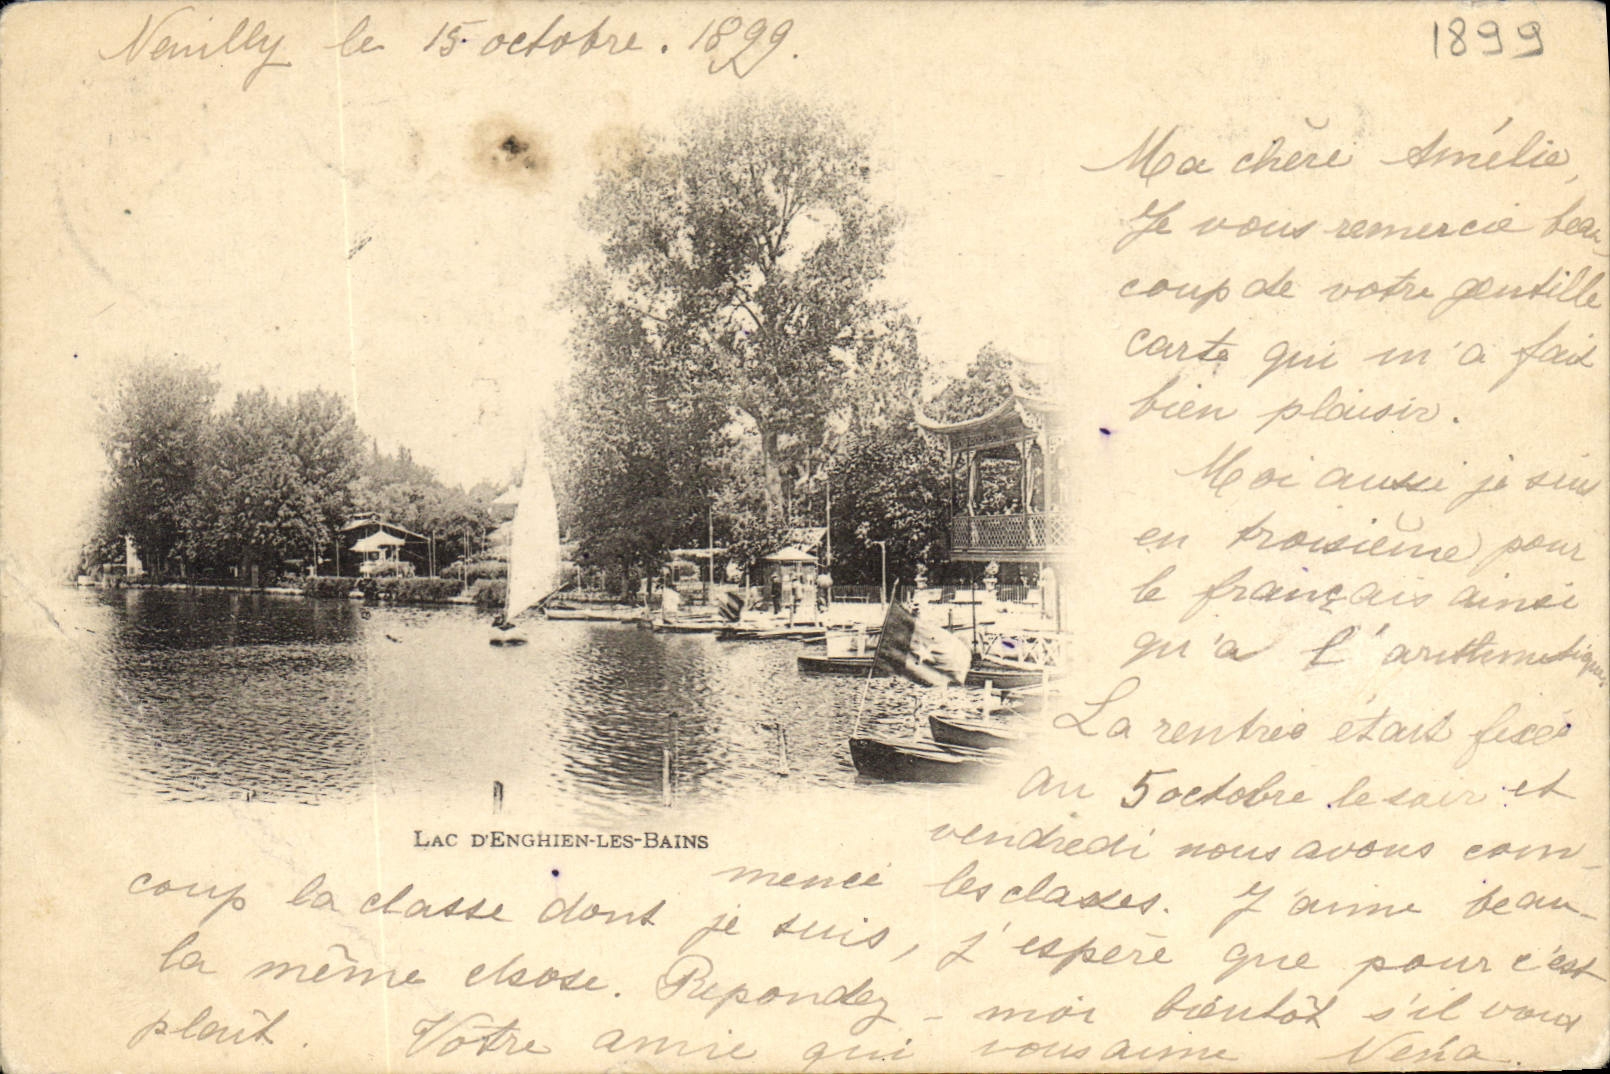 Neuilly le 15 octobre. 1899.
1899
Ma chère Amélie,
Je vous remercie beau-
coup de votre gentille
carte qui m'a fait
bien plaisir.
Moi aussi je suis
en troisième pour
le français ainsi
qu'a l'arithmétique,
La rentrée était fixée
au 5 octobre le soir et
vendredi nous avons com-
mencé les classes. J'aime beau-
coup la classe dont je suis, j'espère que pour c'est
la même chose. Repondez-moi bientôt s'il vous
plaît. Votre amie qui vous aime Nena.
LAC D'ENGHIEN-LES-BAINS